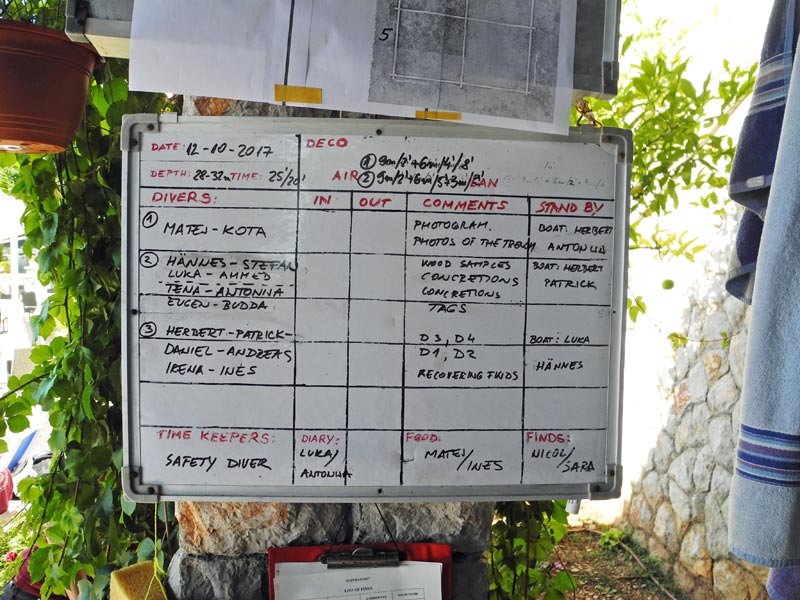 5
DATE: 12-10-2017 DECO
① 9m/2'+6m/4'/8'
DEPTH: 28-32m TIME: 25'/20' AIR ② 9m/2'+6m/5'+3m/ EAN
DIVERS: IN OUT COMMENTS STAND BY
① MATEJ-KOTA PHOTOGRAM. BOAT: HERBERT
PHOTOS OF THE TRENCH ANTONIJA
② HÄNNES-STEFAN WOOD SAMPLES BOAT: HERBERT
LUKA-AHMED CONCRETIONS PATRICK
TENA-ANTONIJA CONCRETIONS
EUGEN-BUDDA TAGS
③ HERBERT-PATRICK- D3, D4 BOAT: LUKA
DANIEL-ANDREAS D1, D2 HÄNNES
IRENA-INES RECOVERING FINDS
TIME KEEPERS: DIARY: FOOD: FINDS:
SAFETY DIVER LUKA/ MATEJ/INES NICOL/SARA
ANTONIJA
LIST OF FINDS